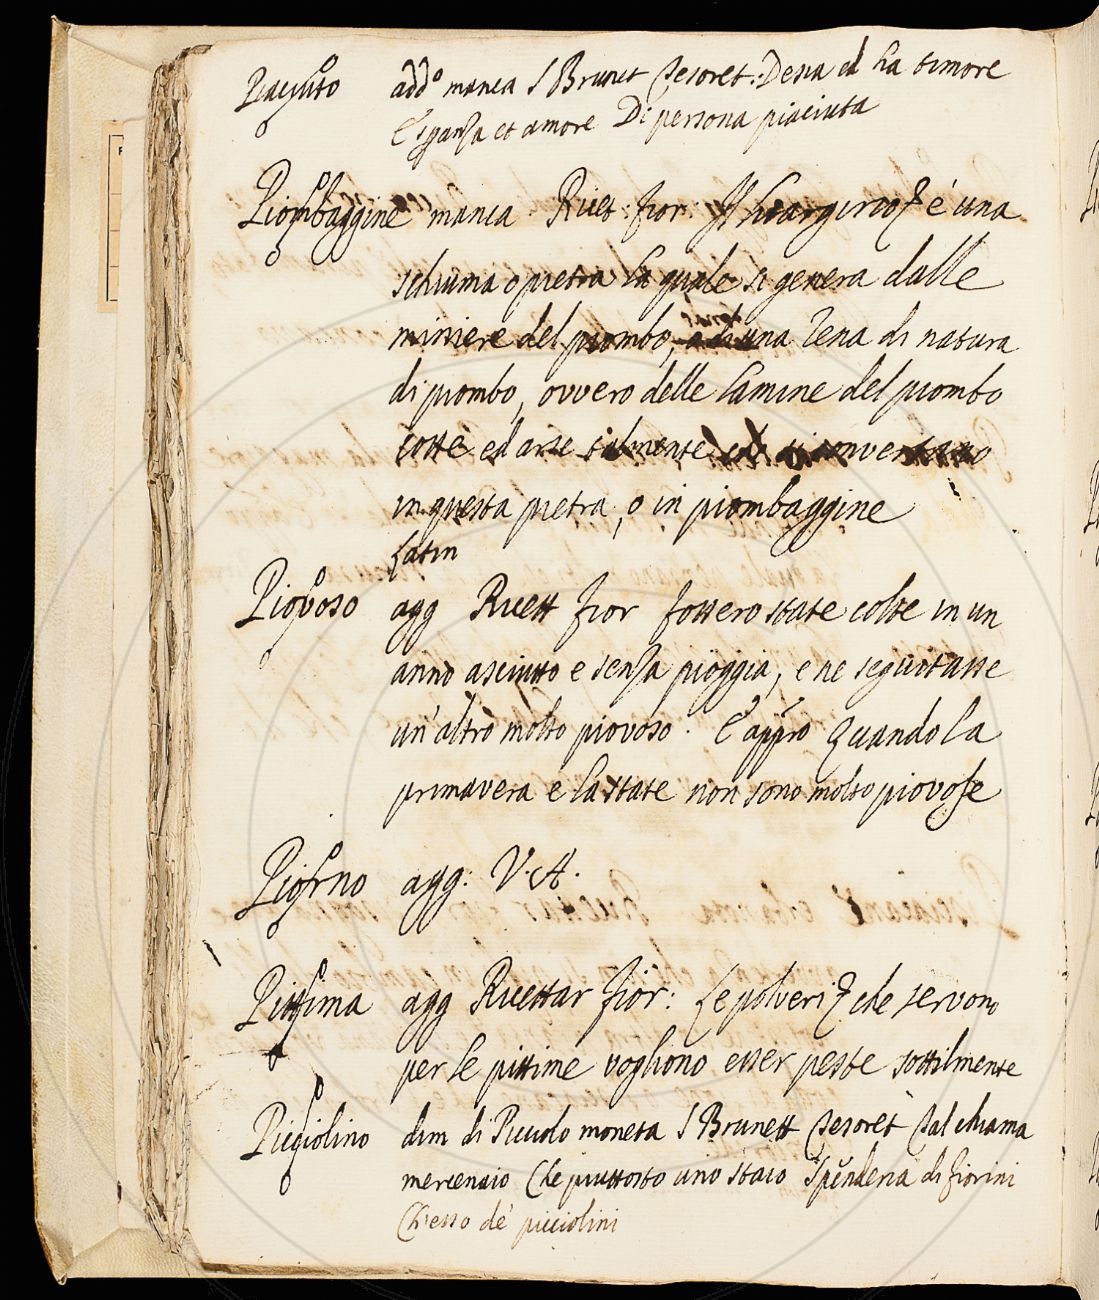 Piaciuto add.o manca S Brunet Tesoret: Desia ed ha timore
E speranza et amore Di persona piaciuta
Piombaggine manca Ricet: fior: Il litargirio è una
schiuma o pietra la quale si genera dalle
miniere del piombo, una vena di natura
di piombo, ovvero delle lamine del piombo
cotte ed arse talmente si convertano
in questa pietra, o in piombaggine
Latin
Piovoso agg Ricett fior fossero state colte in un
anno asciutto e senza pioggia, e ne seguitasse
un'altro molto piovoso. E app.o Quando la
primavera e la state non sono molto piovose
Piorno agg: V. A.
Pittima agg Ricettar fior: Le polveri che servono
per le pittime vogliono esser peste sottilmente
Picciolino dim di Picciolo moneta S Brunett Tesoret Tal chiama
mercennaio Che piuttosto uno staio Spenderia di fiorini
Ch'esso de' picciolini